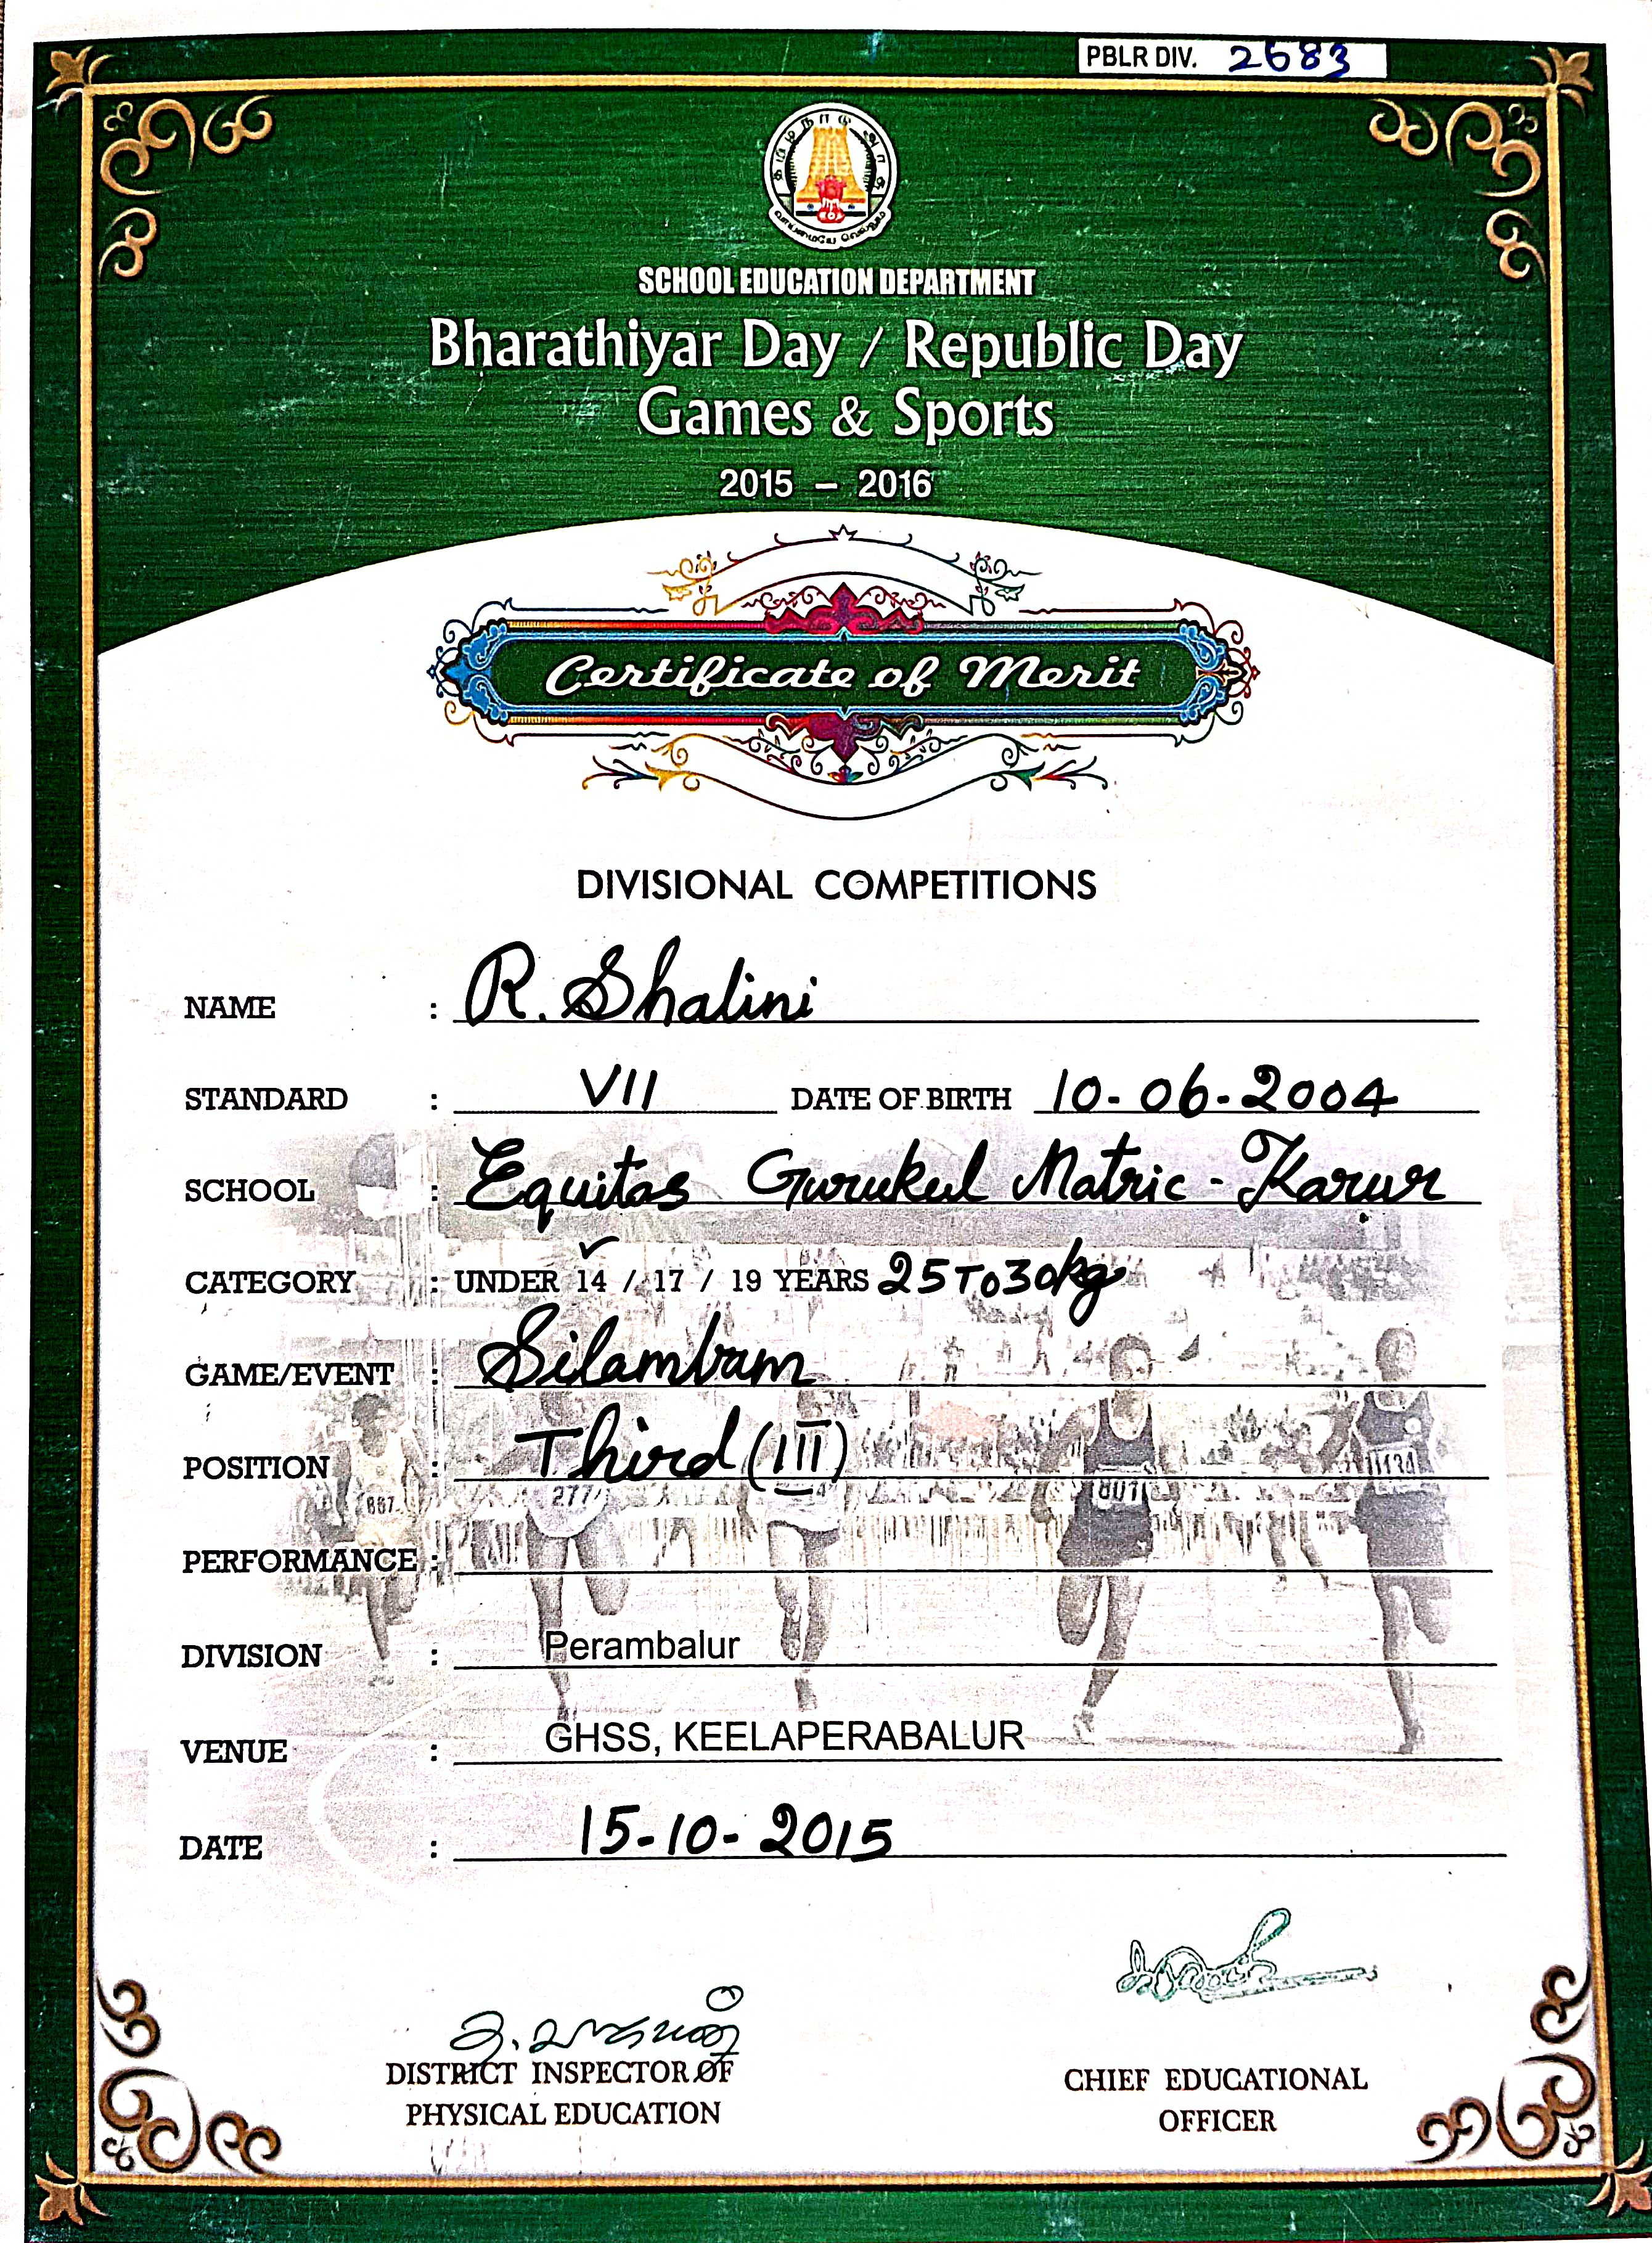 PBLR DIV. 2683
தமிழ்நாடு அரசு
வாய்மையே வெல்லும்
SCHOOL EDUCATION DEPARTMENT
Bharathiyar Day / Republic Day
Games & Sports
2015 – 2016
Certificate of Merit
DIVISIONAL COMPETITIONS
NAME : R. Shalini
STANDARD : VII DATE OF BIRTH 10-06-2004
SCHOOL : Equitas Gurukul Matric - Karur
CATEGORY : UNDER 14 / 17 / 19 YEARS 25 To 30kg
GAME/EVENT : Silambam
POSITION : Third (III)
667
277
801
1134
PERFORMANCE :
DIVISION : Perambalur
VENUE : GHSS, KEELAPERABALUR
DATE : 15-10-2015
DISTRICT INSPECTOR OF
PHYSICAL EDUCATION
CHIEF EDUCATIONAL
OFFICER